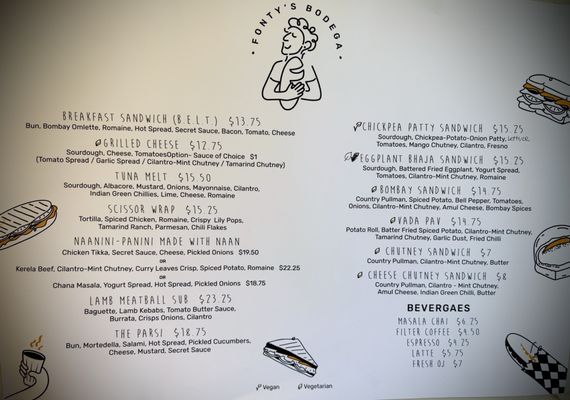 FONTY'S BODEGA
BREAKFAST SANDWICH (B.E.L.T.) $13.75
Bun, Bombay Omlette, Romaine, Hot Spread, Secret Sauce, Bacon, Tomato, Cheese
GRILLED CHEESE $12.75
Sourdough, Cheese, TomatoesOption- Sauce of Choice $1
(Tomato Spread / Garlic Spread / Cilantro-Mint Chutney / Tamarind Chutney)
TUNA MELT $15.50
Sourdough, Albacore, Mustard, Onions, Mayonnaise, Cilantro,
Indian Green Chillies, Lime, Cheese, Romaine
SCISSOR WRAP $15.25
Tortilla, Spiced Chicken, Romaine, Crispy Lily Pops,
Tamarind Ranch, Parmesan, Chili Flakes
NAANINI-PANINI MADE WITH NAAN
Chicken Tikka, Secret Sauce, Cheese, Pickled Onions $19.50
OR
Kerela Beef, Cilantro-Mint Chutney, Curry Leaves Crisp, Spiced Potato, Romaine $22.25
OR
Chana Masala, Yogurt Spread, Hot Spread, Pickled Onions $18.75
LAMB MEATBALL SUB $23.25
Baguette, Lamb Kebabs, Tomato Butter Sauce,
Burrata, Crisps Onions, Cilantro
THE PARSI $18.75
Bun, Mortedella, Salami, Hot Spread, Pickled Cucumbers,
Cheese, Mustard, Secret Sauce
CHICKPEA PATTY SANDWICH $15.25
Sourdough, Chickpea-Potato-Onion Patty, lettuce
Tomatoes, Mango Chutney, Cilantro, Fresno
EGGPLANT BHAJA SANDWICH $15.25
Sourdough, Battered Fried Eggplant, Yogurt Spread,
Tomatoes, Cilantro-Mint Chutney, Romaine
BOMBAY SANDWICH $14.75
Country Pullman, Spiced Potato, Bell Pepper, Tomatoes,
Onions, Cilantro-Mint Chutney, Amul Cheese, Bombay Spices
VADA PAV $14.75
Potato Roll, Batter Fried Spiced Potato, Cilantro-Mint Chutney,
Tamarind Chutney, Garlic Dust, Fried Chilli
CHUTNEY SANDWICH $7
Country Pullman, Cilantro-Mint Chutney, Butter
CHEESE CHUTNEY SANDWICH $8
Country Pullman, Cilantro - Mint Chutney,
Amul Cheese, Indian Green Chilli, Butter
BEVERGAES
MASALA CHAI $6.25
FILTER COFFEE $4.50
ESPRESSO $4.25
LATTE $5.75
FRESH OJ $7
Vegan Vegetarian